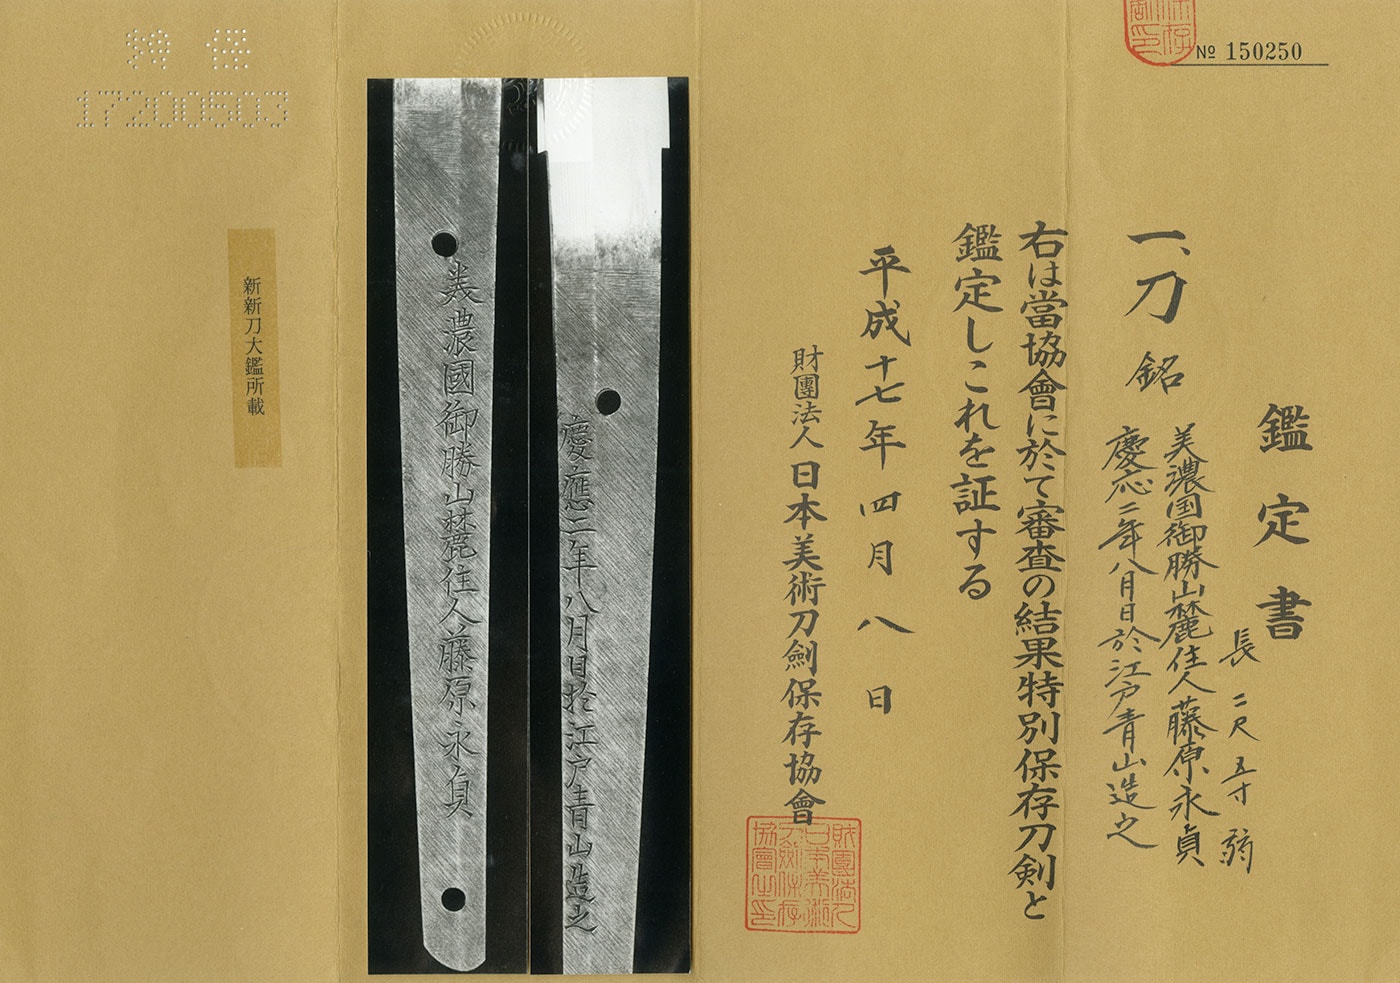 № 150250
鑑定書
一、刀 銘 美濃国御勝山麓住人藤原永貞
慶応二年八月日於江戸青山造之
長二尺五寸弱
右は當協會に於て審査の結果特別保存刀剣と
鑑定しこれを証する
平成十七年四月八日
財團法人日本美術刀劍保存協會
財團法人日本美術刀劍保存協會之印
慶應二年八月日於江戸青山造之
美濃國御勝山麓住人藤原永貞
新新刀大鑑所載
特保
17200503